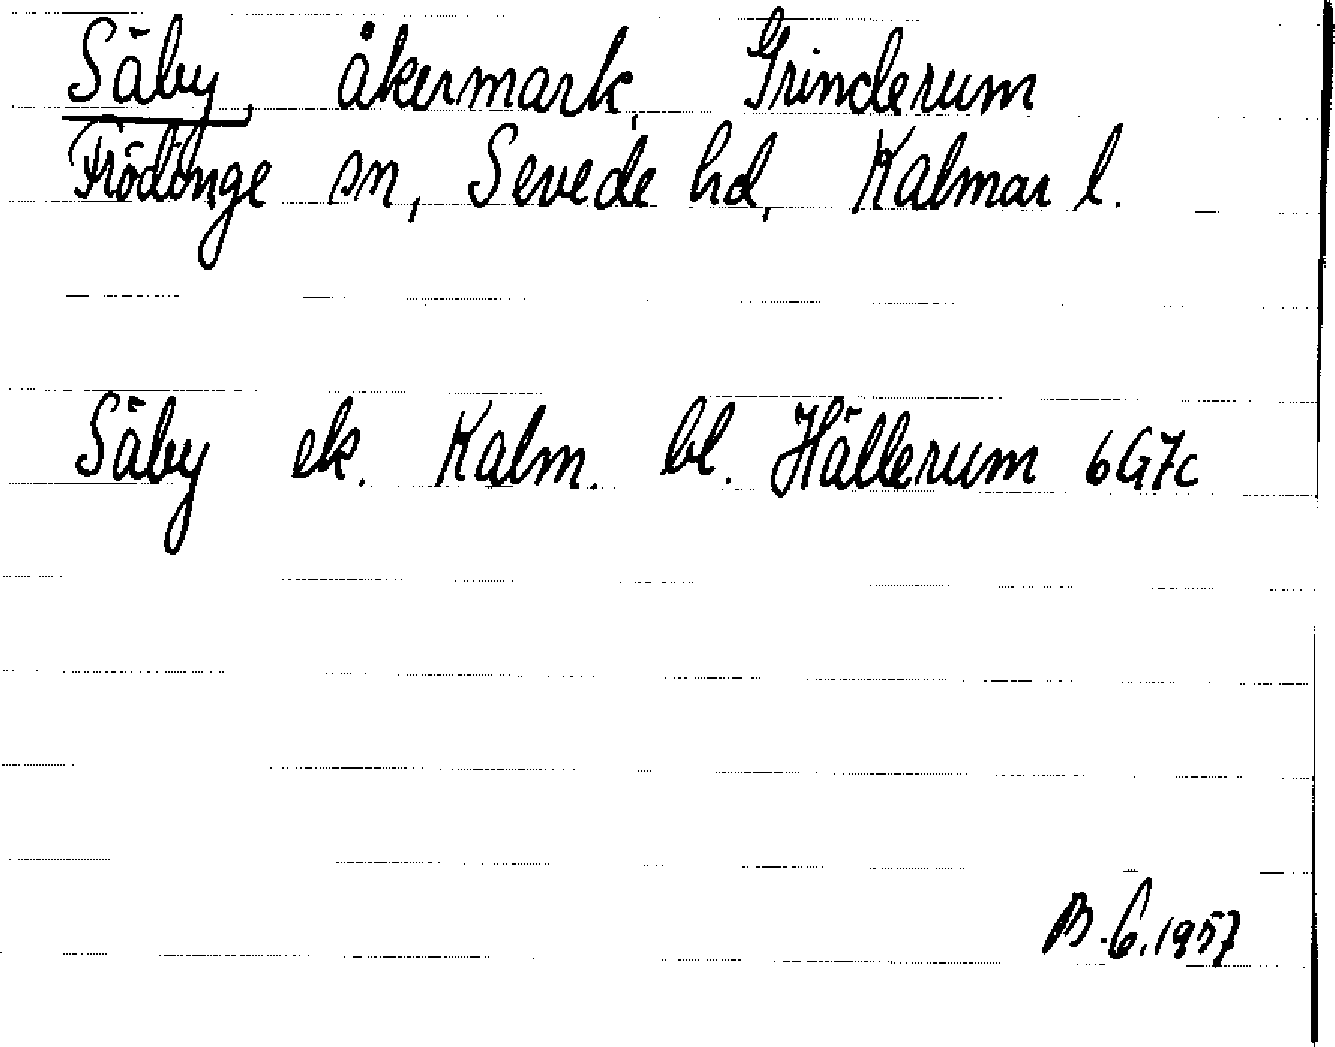 Säby, åkermark, Grinderum
Frödinge sn, Sevede hd, Kalmar l.
Säby ek. Kalm. bl. Hällerum 6G7c
B.G. 1957